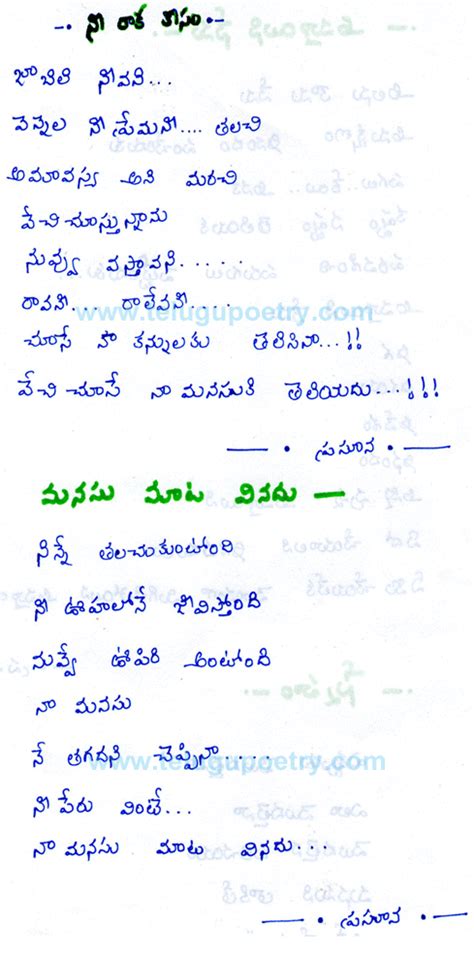 -. నీ రాక కోసం .-
జాబిలి నీవని...
వెన్నెల నీ ప్రేమని.... తలచి
అమావస్య అని మరచి
వేచి చూస్తున్నాను
నువ్వు వస్తావని......
రావని.... రాలేవని....
www.telugupoetry.com
చూసే నా కన్నులకు తెలిసినా...!!
వేచి చూసే నా మనసుకి తెలియదు...!!!
—— . ప్రసూన . ——
మనసు మాట వినదు —
నిన్నే తలచుకుంటోంది
నీ ఊహలోనే జీవిస్తోంది
నువ్వే ఊపిరి అంటోంది
నా మనసు
నే తగనని చెప్పినా.....
www.telugupoetry.com
నీ పేరు వింటే...
నా మనసు మాట వినదు...
—— . ప్రసూన . ——